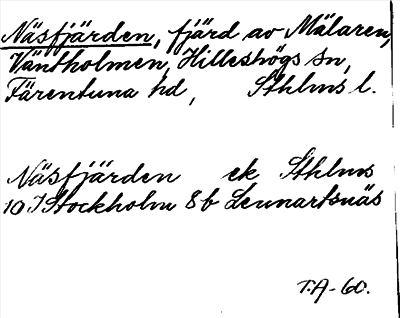 Näsfjärden, fjärd av Mälaren,
Väntholmen, Hilleshögs sn,
Färentuna hd, Sthlms l.
Näsfjärden ek Sthlms
10 I Stockholm 8b Lennartsnäs
T.A-60.